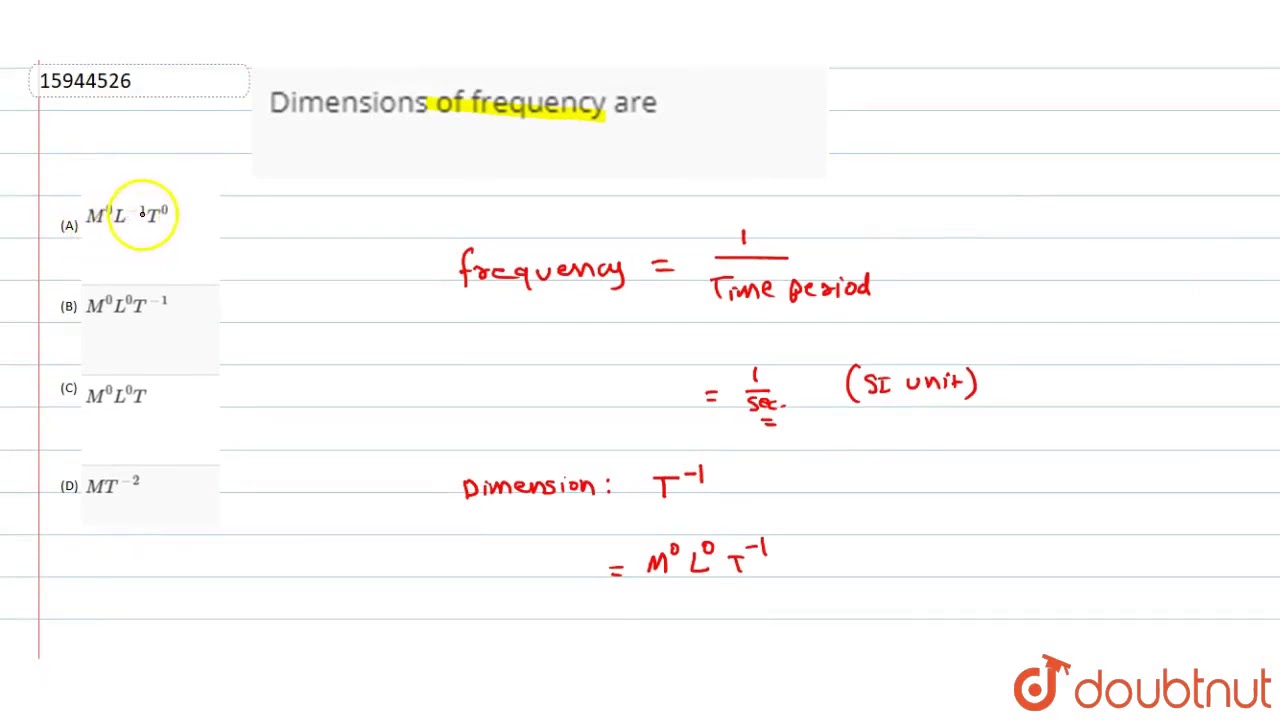 15944526
Dimensions of frequency are
(A) M⁰L⁻¹T⁰
(B) M⁰L⁰T⁻¹
(C) M⁰L⁰T
(D) MT⁻²
frequency = 1 / Time period
= 1 / Sec. (SI unit)
Dimension: T⁻¹
= M⁰ L⁰ T⁻¹
doubtnut